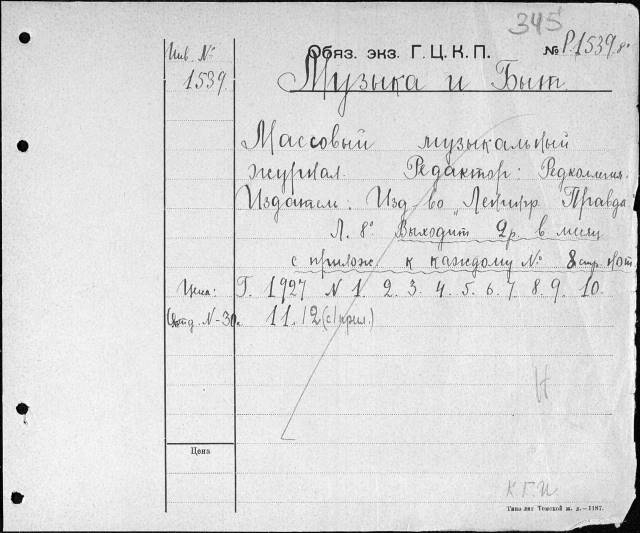 345
Инв. №
1539.
Обяз. экз. Г. Ц. К. П. № Р.1539 8°
Музыка и Быт
Массовый музыкальный
журнал. Редактор: Редколлегия.
Издатель: Изд-во „Ленингр. Правда"
Л. 8° Выходит 2 р. в месяц
с прилож. к каждому № 8 стр. нот
Цена: Г. 1927 N 1. 2. 3. 4. 5. 6. 7. 8. 9. 10.
Отд. N-30к. 11. 12 (с/прил.)
Н
Цена
К.Г.И.
Типо лит Томской ж. д.—1187.